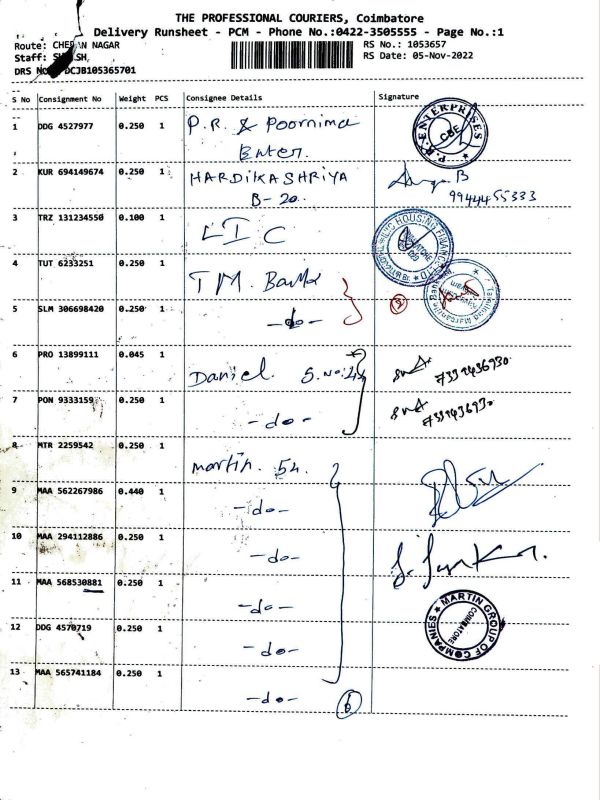 THE PROFESSIONAL COURIERS, Coimbatore
Delivery Runsheet - PCM - Phone No.:0422-3505555 - Page No.:1
Route: CHERAN NAGAR
Staff:
DRS NO
RS No.: 1053657
RS Date: 05-Nov-2022
S No Consignment No Weight PCS Consignee Details Signature
1 DDG 4527977 0.250 1 P.R. & Poornima
Enter.
P.R. ENTERPRISES CBE
2 KUR 694149674 0.250 1 HARDIKASHRIYA
B-20
9944455333
3 TRZ 131234550 0.100 1 LIC
LIC HOUSING FINANCE LTD
4 TUT 6233251 0.250 1 TM. Bank
5 SLM 306698420 0.250 1 -do- 2
Tamilnad Mercantile Bank
6 PRO 13899111 0.045 1 Daniel. S.No:
7 PON 9333159 0.250 1 -do-
8 MTR 2259542 0.250 1 martin. Sn.
9 MAA 562267986 0.440 1 -do-
10 MAA 294112886 0.250 1 -do-
11 MAA 568530881 0.250 1 -do-
12 DDG 4570719 0.250 1 -do-
MARTIN GROUP OF COMPANIES COIMBATORE
13 MAA 565741184 0.250 1 -do- 6